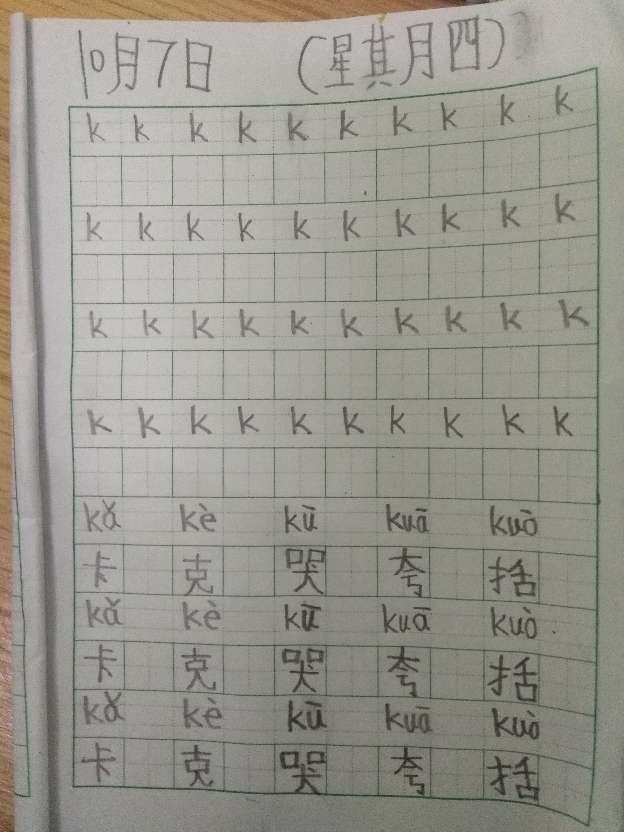 10月7日 (星其月四)
k k k k k k k k k k
k k k k k k k k k k
k k k k k k k k k k
k k k k k k k k k k
kǎ kè kū kuā kuò
卡 克 哭 夸 括
kǎ kè kū kuā kuò
卡 克 哭 夸 括
kǎ kè kū kuā kuò
卡 克 哭 夸 括